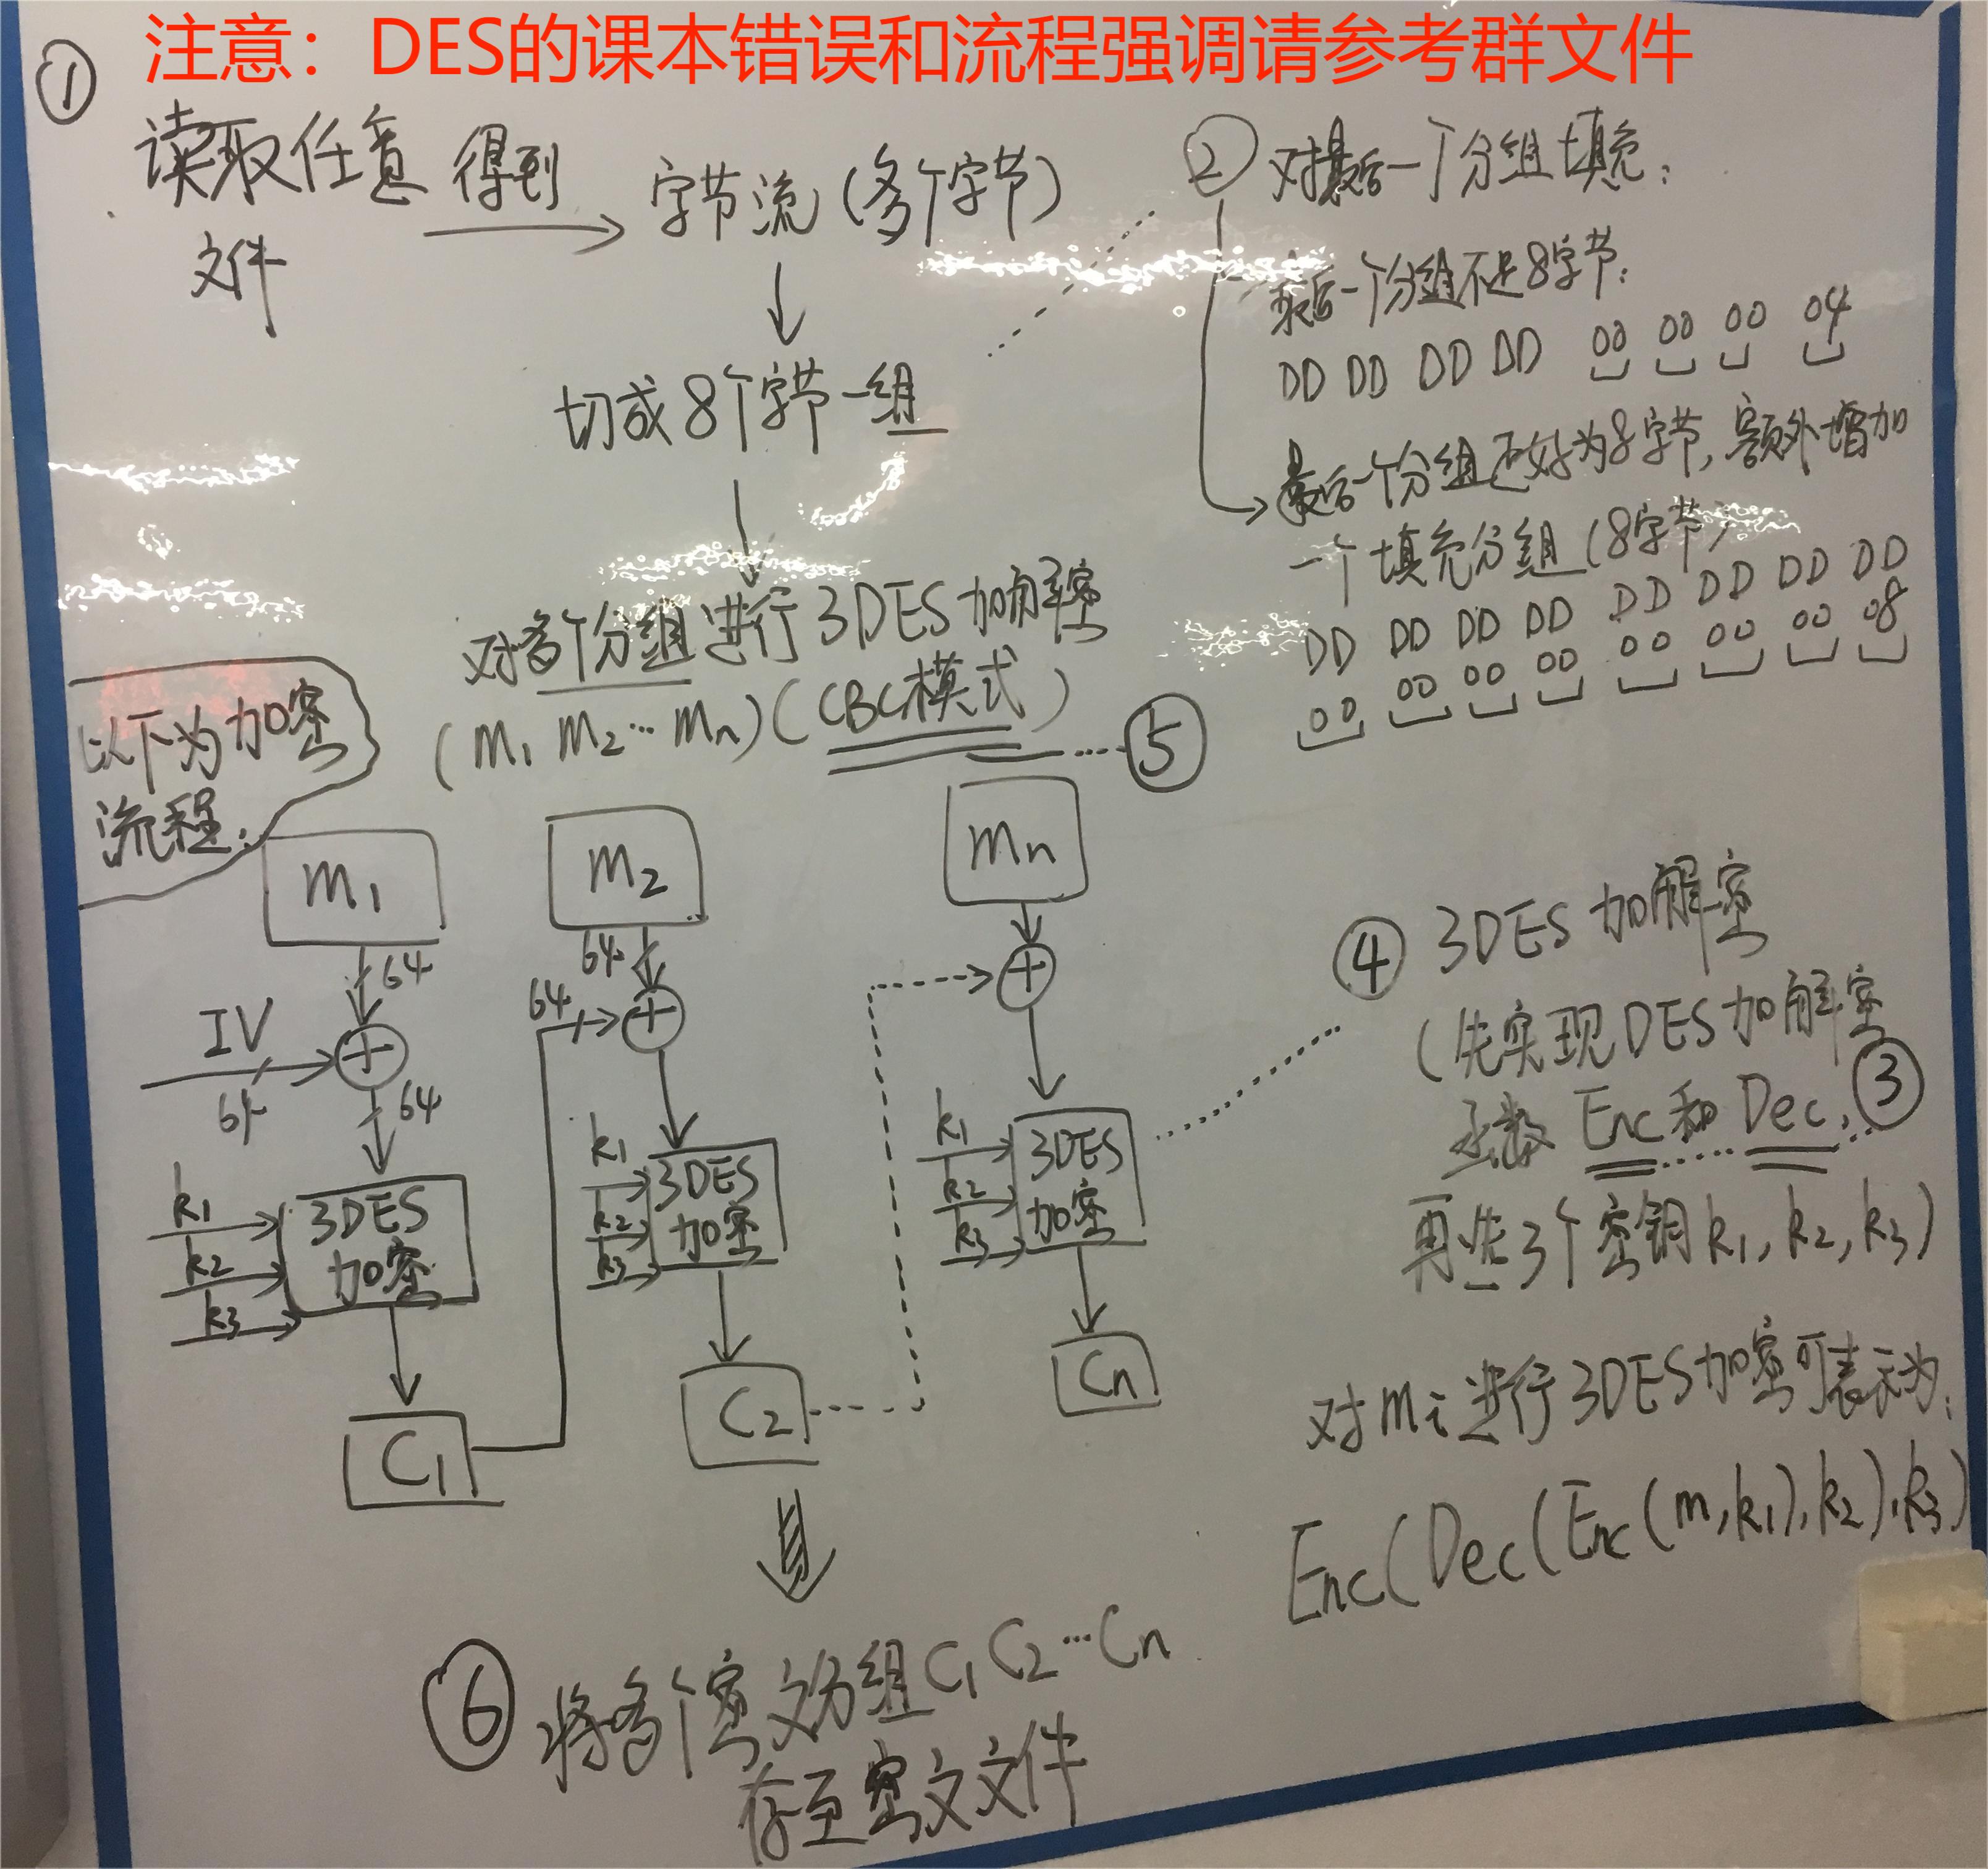 注意：DES的课本错误和流程强调请参考群文件
①
读取任意
文件
得到
字节流(多个字节)
切成8个字节一组
对多个分组进行3DES加解密
(m1 m2…mn)(CBC模式)
⑤
② 对最后一个分组填充:
最后一个分组不足8字节:
DD DD DD DD 00 00 00 04
最后一个分组正好为8字节,额外增加
一个填充分组(8字节)
DD DD DD DD DD DD DD DD
00 00 00 00 00 00 00 08
以下为加密
流程:
m1
64
IV
64
64
k1
k2
k3
3DES
加密
C1
m2
64
64
k1
k2
k3
3DES
加密
C2
mn
k1
k2
k3
3DES
加密
Cn
④ 3DES加解密
(先实现DES加解密
函数 Enc和Dec, ③
再选3个密钥k1,k2,k3)
对mi进行3DES加密可表示为:
Enc(Dec(Enc(m,k1),k2),k3)
⑥ 将多个密文分组C1C2…Cn
存至密文文件